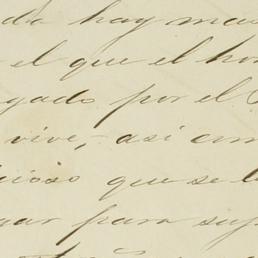 da hay mas
el que el hon
gado por el
vive, así com
icioso que se
gar para sup